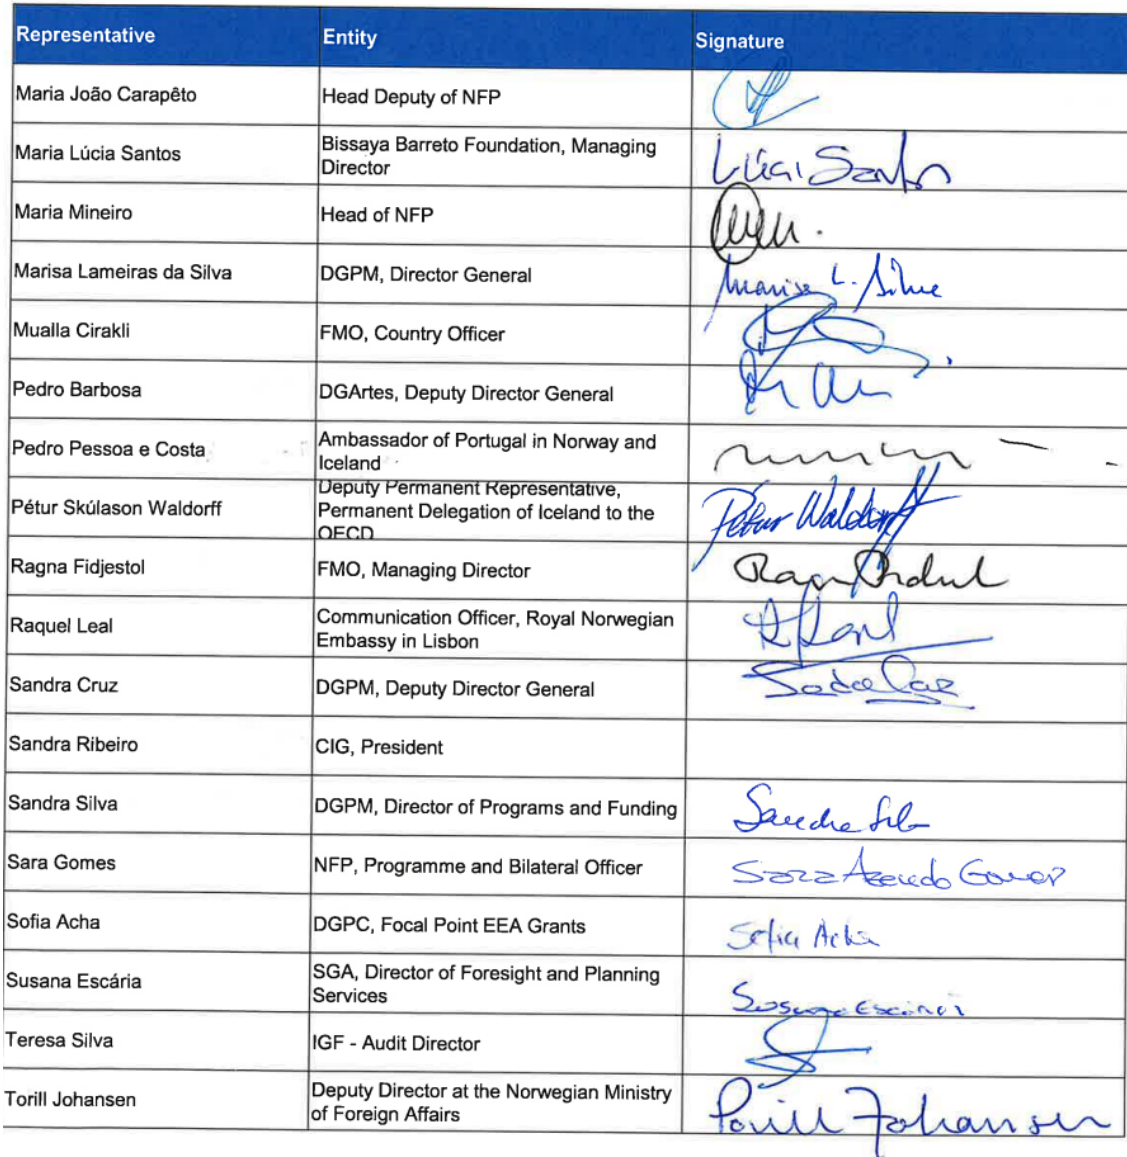 Representative Entity Signature
Maria João Carapêto Head Deputy of NFP
Maria Lúcia Santos Bissaya Barreto Foundation, Managing
Director Lúcia Santos
Maria Mineiro Head of NFP
Marisa Lameiras da Silva DGPM, Director General Marisa L. Silva
Mualla Cirakli FMO, Country Officer
Pedro Barbosa DGArtes, Deputy Director General
Pedro Pessoa e Costa Ambassador of Portugal in Norway and
Iceland
Pétur Skúlason Waldorff Deputy Permanent Representative,
Permanent Delegation of Iceland to the
OECD Pétur Waldorff
Ragna Fidjestol FMO, Managing Director
Raquel Leal Communication Officer, Royal Norwegian
Embassy in Lisbon
Sandra Cruz DGPM, Deputy Director General
Sandra Ribeiro CIG, President
Sandra Silva DGPM, Director of Programs and Funding Sandra Silva
Sara Gomes NFP, Programme and Bilateral Officer Sara Azevedo Gomes
Sofia Acha DGPC, Focal Point EEA Grants Sofia Acha
Susana Escária SGA, Director of Foresight and Planning
Services Susana Escária
Teresa Silva IGF - Audit Director
Torill Johansen Deputy Director at the Norwegian Ministry
of Foreign Affairs Torill Johansen